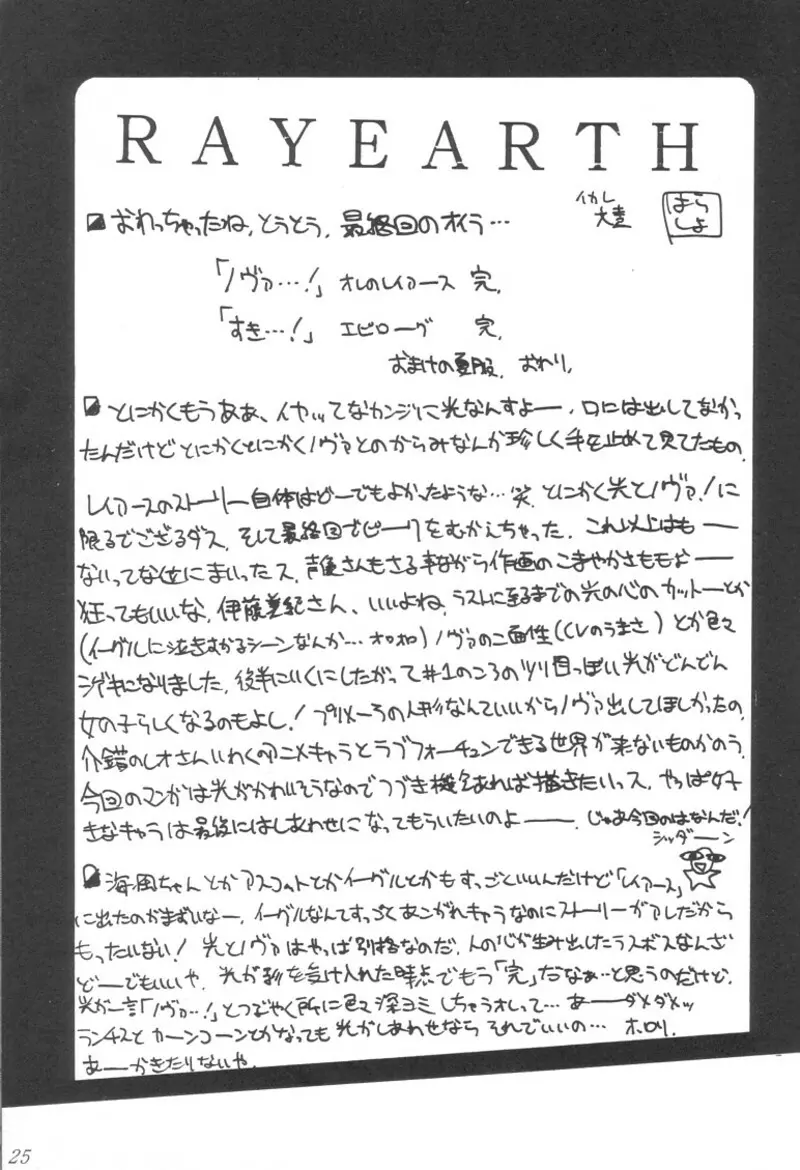 RAYEARTH
イカレ
大王
はら
しょ
おわっちゃったね、とうとう、最終回のオイラ…
「ノヴァ…!」オレのレイアース 完、
「すき…!」エピローグ 完、
おまけの夏服、おわり、
とにかくもうああ、イヤッってなカンジに光なんすよー、口には出してなかっ
たんだけどとにかくとにかくノヴァとのからみなんか珍しく手を止めて見てたもの、
レイアースのストーリー自体はどーでもよかったような…笑、とにかく光とノヴァ!に
限るでござるダス、そして最終回でピークをむかえちゃった、これ以上はもー
ないってな位にまいったス、声優さんもさる事ながら作画のこまやかさももぉー
狂ってもいいな、伊藤美紀さん、いいよね、ラストに至るまでの光の心のカットーとか
(イーグルに泣きむかるシーンなんか…オロオロ)ノヴァの二面性(CVのうまさ)とか色々
シゲキになりました、後半にいくにしたがって#1のころのツリ目っぽい光がどんどん
女の子らしくなるのもよし!プリメーラの人形なんていいからノヴァ出してほしかったの、
介錯のしオさんいわくのアニメキャラとラブフォーチュンできる世界が来ないものかのう、
今回のマンガは光がかわいそうなのでつづき機会あれば描きたいっス、やっぱ好
きなキャラは最後にはしあわせになってもらいたいのよー、じゃあ今回のはなんだ!
ジッダーン
海風ちゃんとかアスコットとかイーグルとかもすっごといいんだけど「レイアース」
に出たのがまずいなー、イーグルなんてすっごくあこがれキャラなのにストーリーがアレだから
もったいない!光とノヴァはやっぱ別格なのだ、人の心が生み出したラスボスなんざ
どーでもいいや、光が影を受け入れた時点でもう「完」だなぁ…と思うのだけど、
光が一言「ノヴァ…!」とつぶやく所に色々深ヨミしちゃうオレって…あーダメダメッ
ランチスと カーンコーンとかなっても 光がしあわせなら それでいいの… ホロリ、
あーかきたりないや、
25